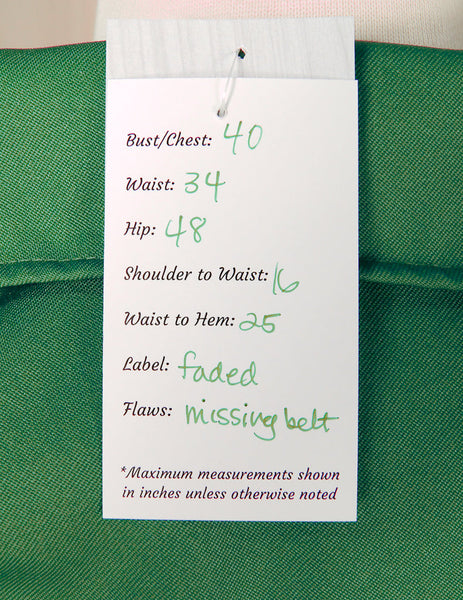 Bust/Chest: 40
Waist: 34
Hip: 48
Shoulder to Waist: 16
Waist to Hem: 25
Label: faded
Flaws: missing belt
*Maximum measurements shown
in inches unless otherwise noted